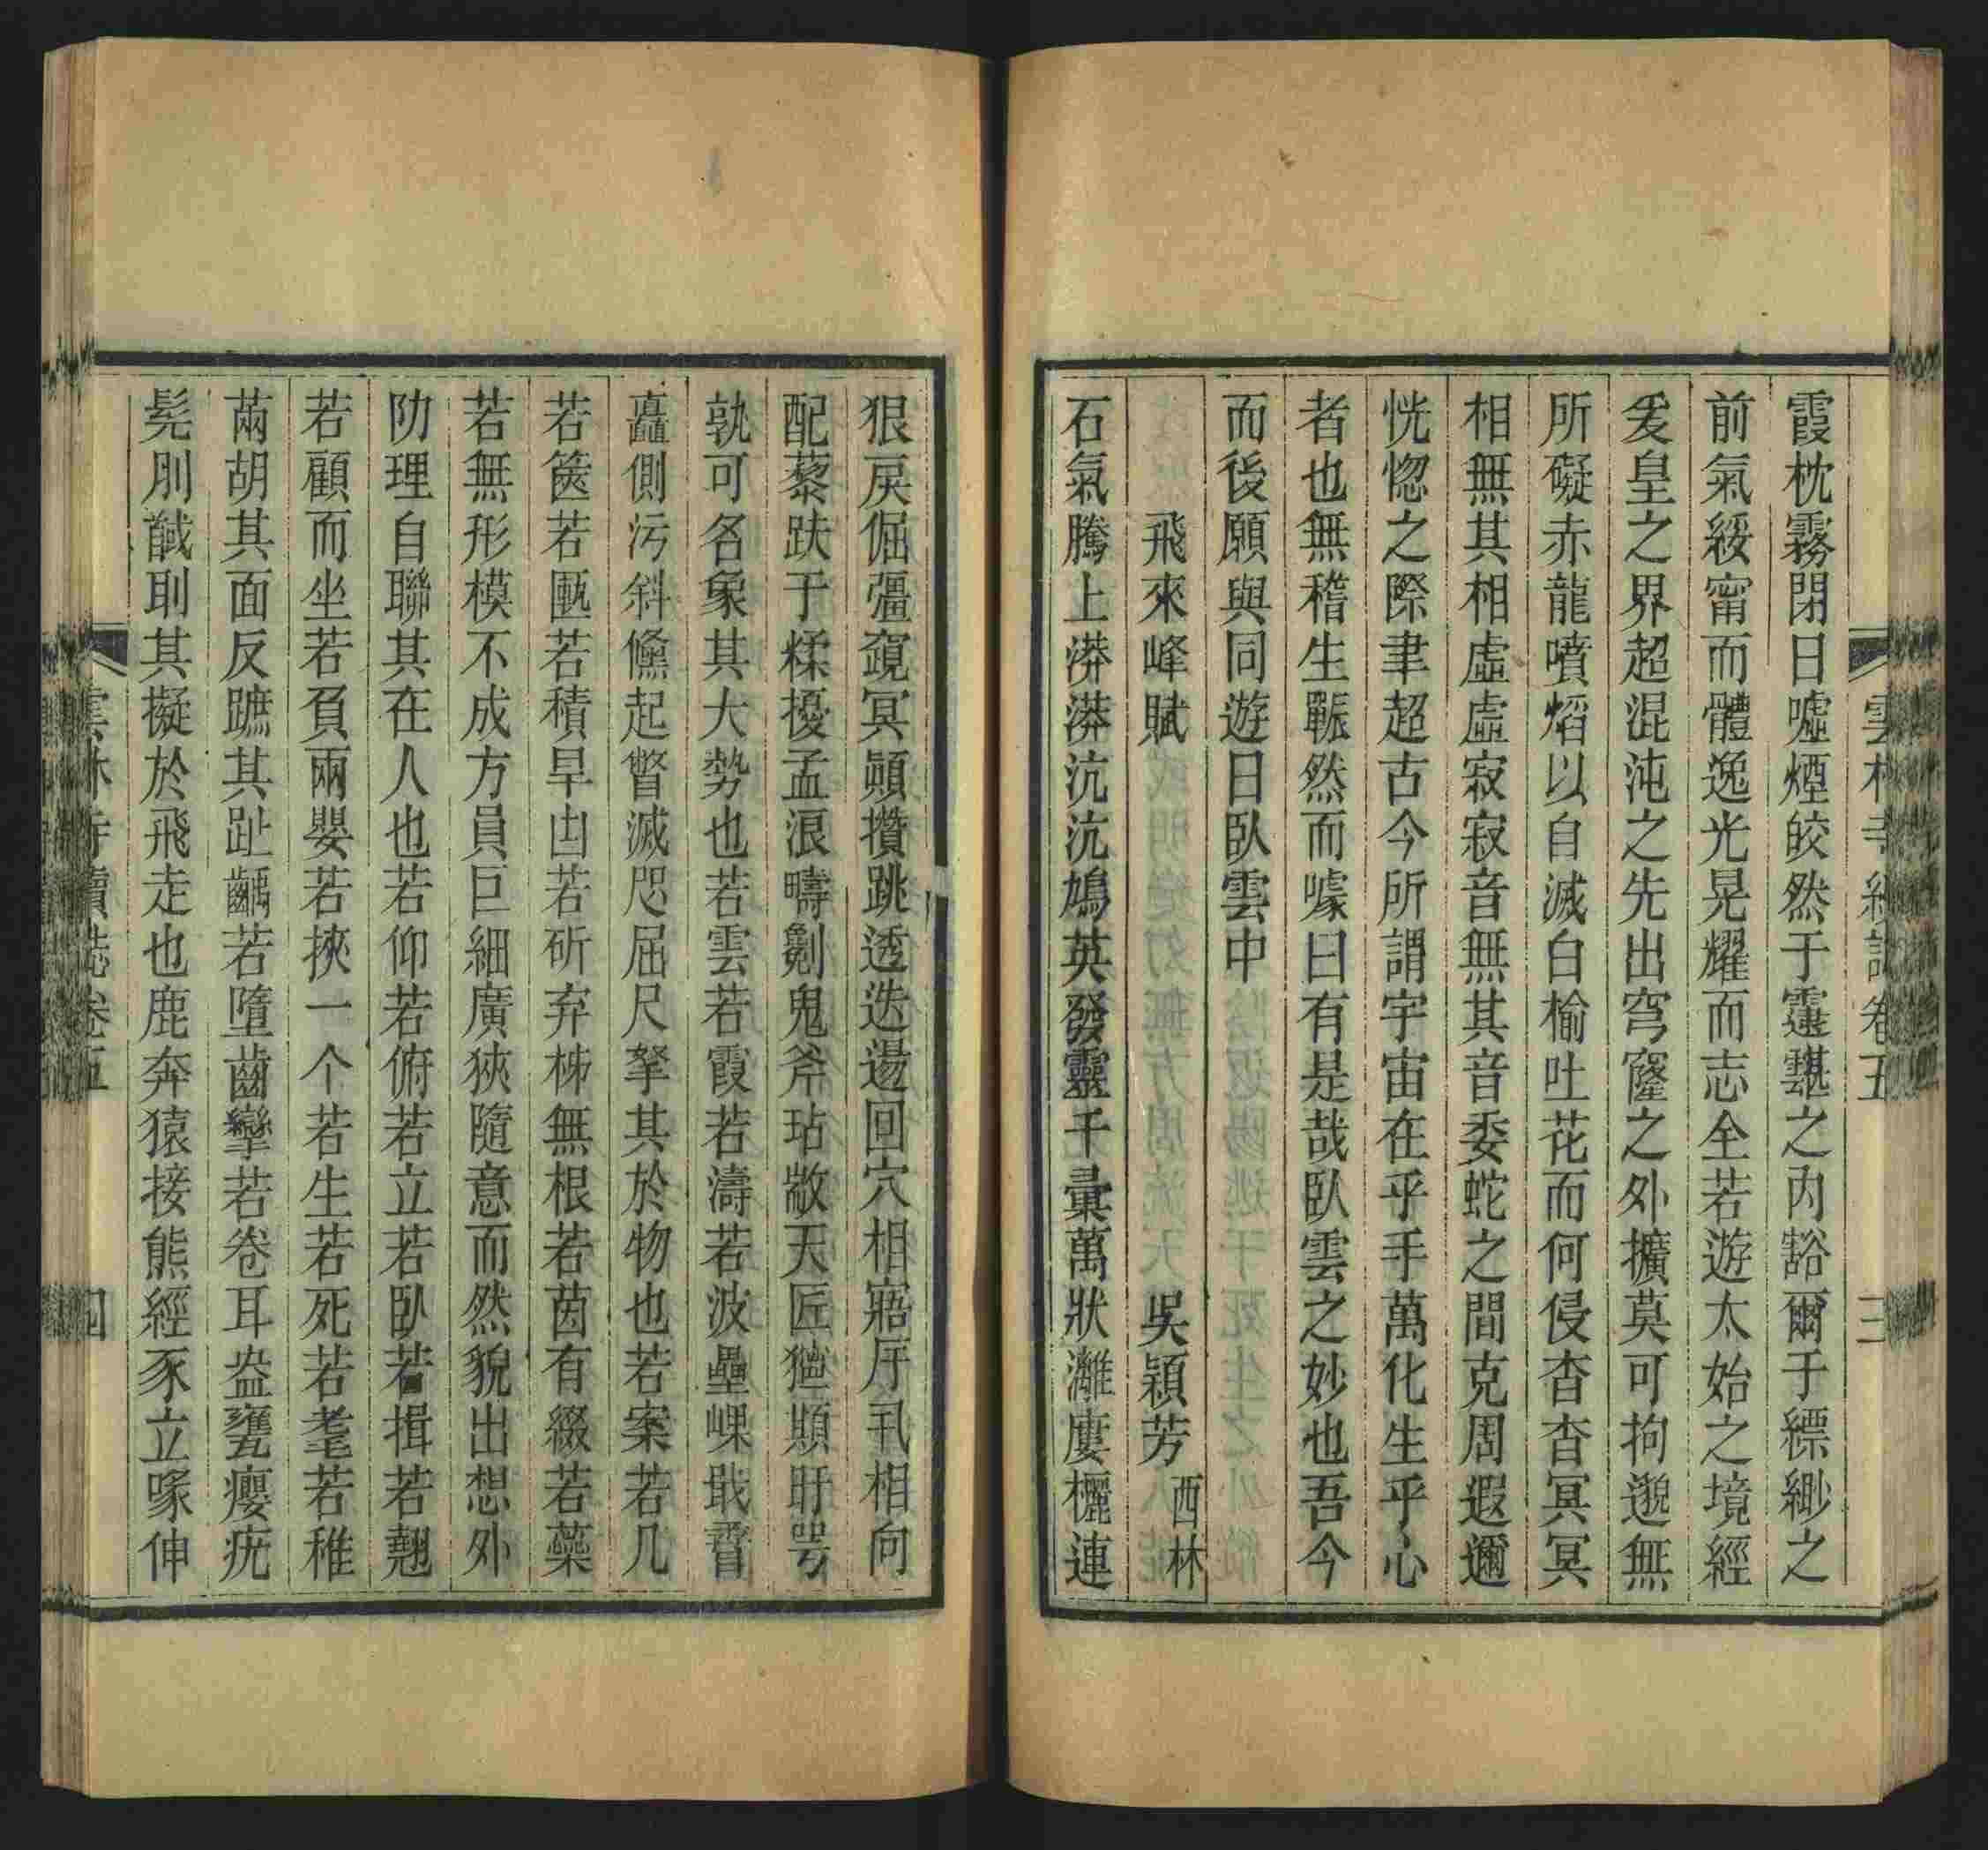 霞枕霧閉日噓煙皎然于靆靆之內豁爾于縹緲之
前氣綏甯而體逸光晃耀而志全若遊太始之境經
爰皇之界超混沌之先出穹窿之外擴莫可拘邈無
所礙赤龍噴熖以自滅白榆吐花而何侵杳杳冥冥
相無其相虛虛寂寂音無其音委蛇之間克周遐邇
恍惚之際聿超古今所謂宇宙在乎手萬化生乎心
者也無稽生囅然而噱曰有是哉臥雲之妙也吾今
而後願與同遊日臥雲中
飛來峰賦 吳穎芳 西林
石氣騰上漭漭沆沆鳩英發靈千彙萬狀灕廔欐連
雲林寺續誌卷五 三
狠戾倔彊窺冥顚攢跳透迭邊回穴相寤㡿丮相向
配藜趺于糅擾孟浪疇剷鬼斧玷敞天匠獝顤盱咢
孰可名象其大勢也若雲若霞若濤若波壘崐戢孴
矗側污斜儵起瞥滅咫屈尺拏其於物也若案若几
若篋若匭若積阜甴若斫弃柹無根若茵有綴若藥
若無形模不成方員巨細廣狹隨意而然貌出想外
阞理自聯其在人也若仰若俯若立若臥若揖若翹
若顧而坐若負兩嬰若挾一个若生若死若耄若稚
𦓎胡其面反蹠其趾齲若墮齒攣若卷耳盎甕癭疣
髡刖馘刵其擬於飛走也鹿奔猿接熊經豕立喙伸
雲林寺續誌卷五 四